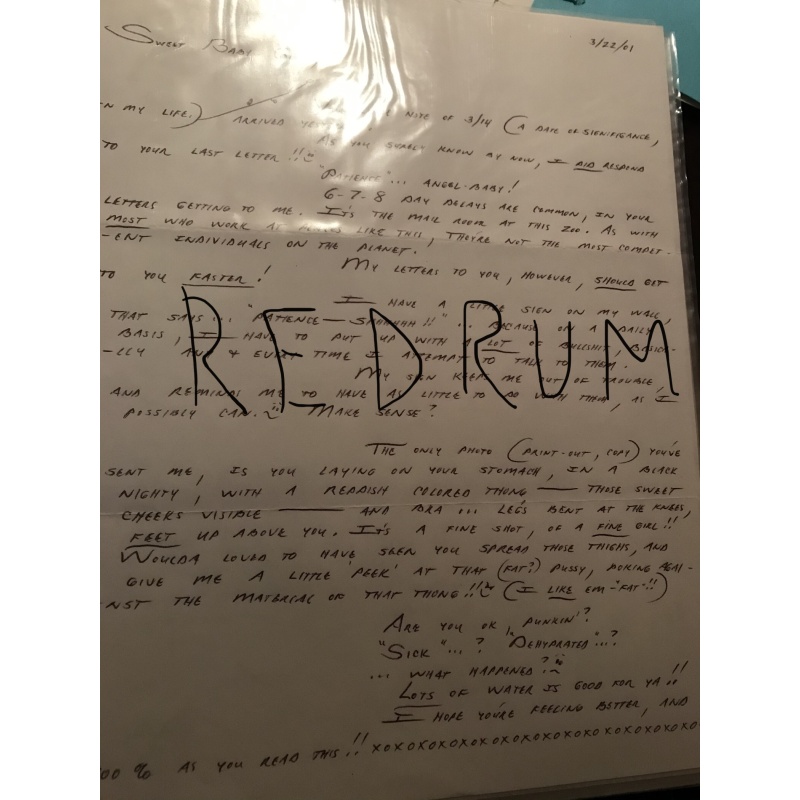 Sweet Baby
3/22/01
N MY LIFE.) ARRIVED NOTE OF 3/14 (A DATE OF SIGNIFICANCE,
AS YOU SURELY KNOW BY NOW, I DID RESPOND
TO YOUR LAST LETTER!!
"PATIENCE"... ANGEL-BABY!
6-7-8 DAY DELAYS ARE COMMON, IN YOUR
LETTERS GETTING TO ME. IT'S THE MAIL ROOM AT THIS ZOO. AS WITH
MOST WHO WORK AT PLACES LIKE THIS, THEY'RE NOT THE MOST COMPET-
-ENT INDIVIDUALS ON THE PLANET.
MY LETTERS TO YOU, HOWEVER, SHOULD GET
TO YOU FASTER!
I HAVE A LITTLE SIGN ON MY WALL
THAT SAYS... "PATIENCE — SHHHHHH!!"... BECAUSE ON A DAILY
BASIS, I HAVE TO PUT UP WITH A LOT OF BULLSHIT, BASICA-
-LLY EVERY TIME I ATTEMPT TO TALK TO THEM.
REDRUM
MY SIGN KEEPS ME OUT OF TROUBLE,
AND REMINDS ME TO HAVE AS LITTLE TO DO WITH THEM, AS I
POSSIBLY CAN. MAKE SENSE?
THE ONLY PHOTO (PRINT-OUT, COPY) YOU'VE
SENT ME, IS YOU LAYING ON YOUR STOMACH, IN A BLACK
NIGHTY, WITH A REDDISH COLORED THONG — THOSE SWEET
CHEEKS VISIBLE — AND BRA... LEGS BENT AT THE KNEES,
FEET UP ABOVE YOU. IT'S A FINE SHOT, OF A FINE GIRL!!
WOULDA LOVED TO HAVE SEEN YOU SPREAD THOSE THIGHS, AND
GIVE ME A LITTLE 'PEEK' AT THAT (FAT?) PUSSY, POKING AGAI-
NST THE MATERIAL OF THAT THONG!! (I LIKE EM-"FAT"!!)
ARE YOU OK, PUNKIN'?
"SICK"...? "DEHYDRATED"...?
... WHAT HAPPENED?
LOTS OF WATER IS GOOD FOR YA!!
I HOPE YOU'RE FEELING BETTER, AND
00% AS YOU READ THIS!! XOXOXOXOXOXOXOXOXOXOXOXOXOXO